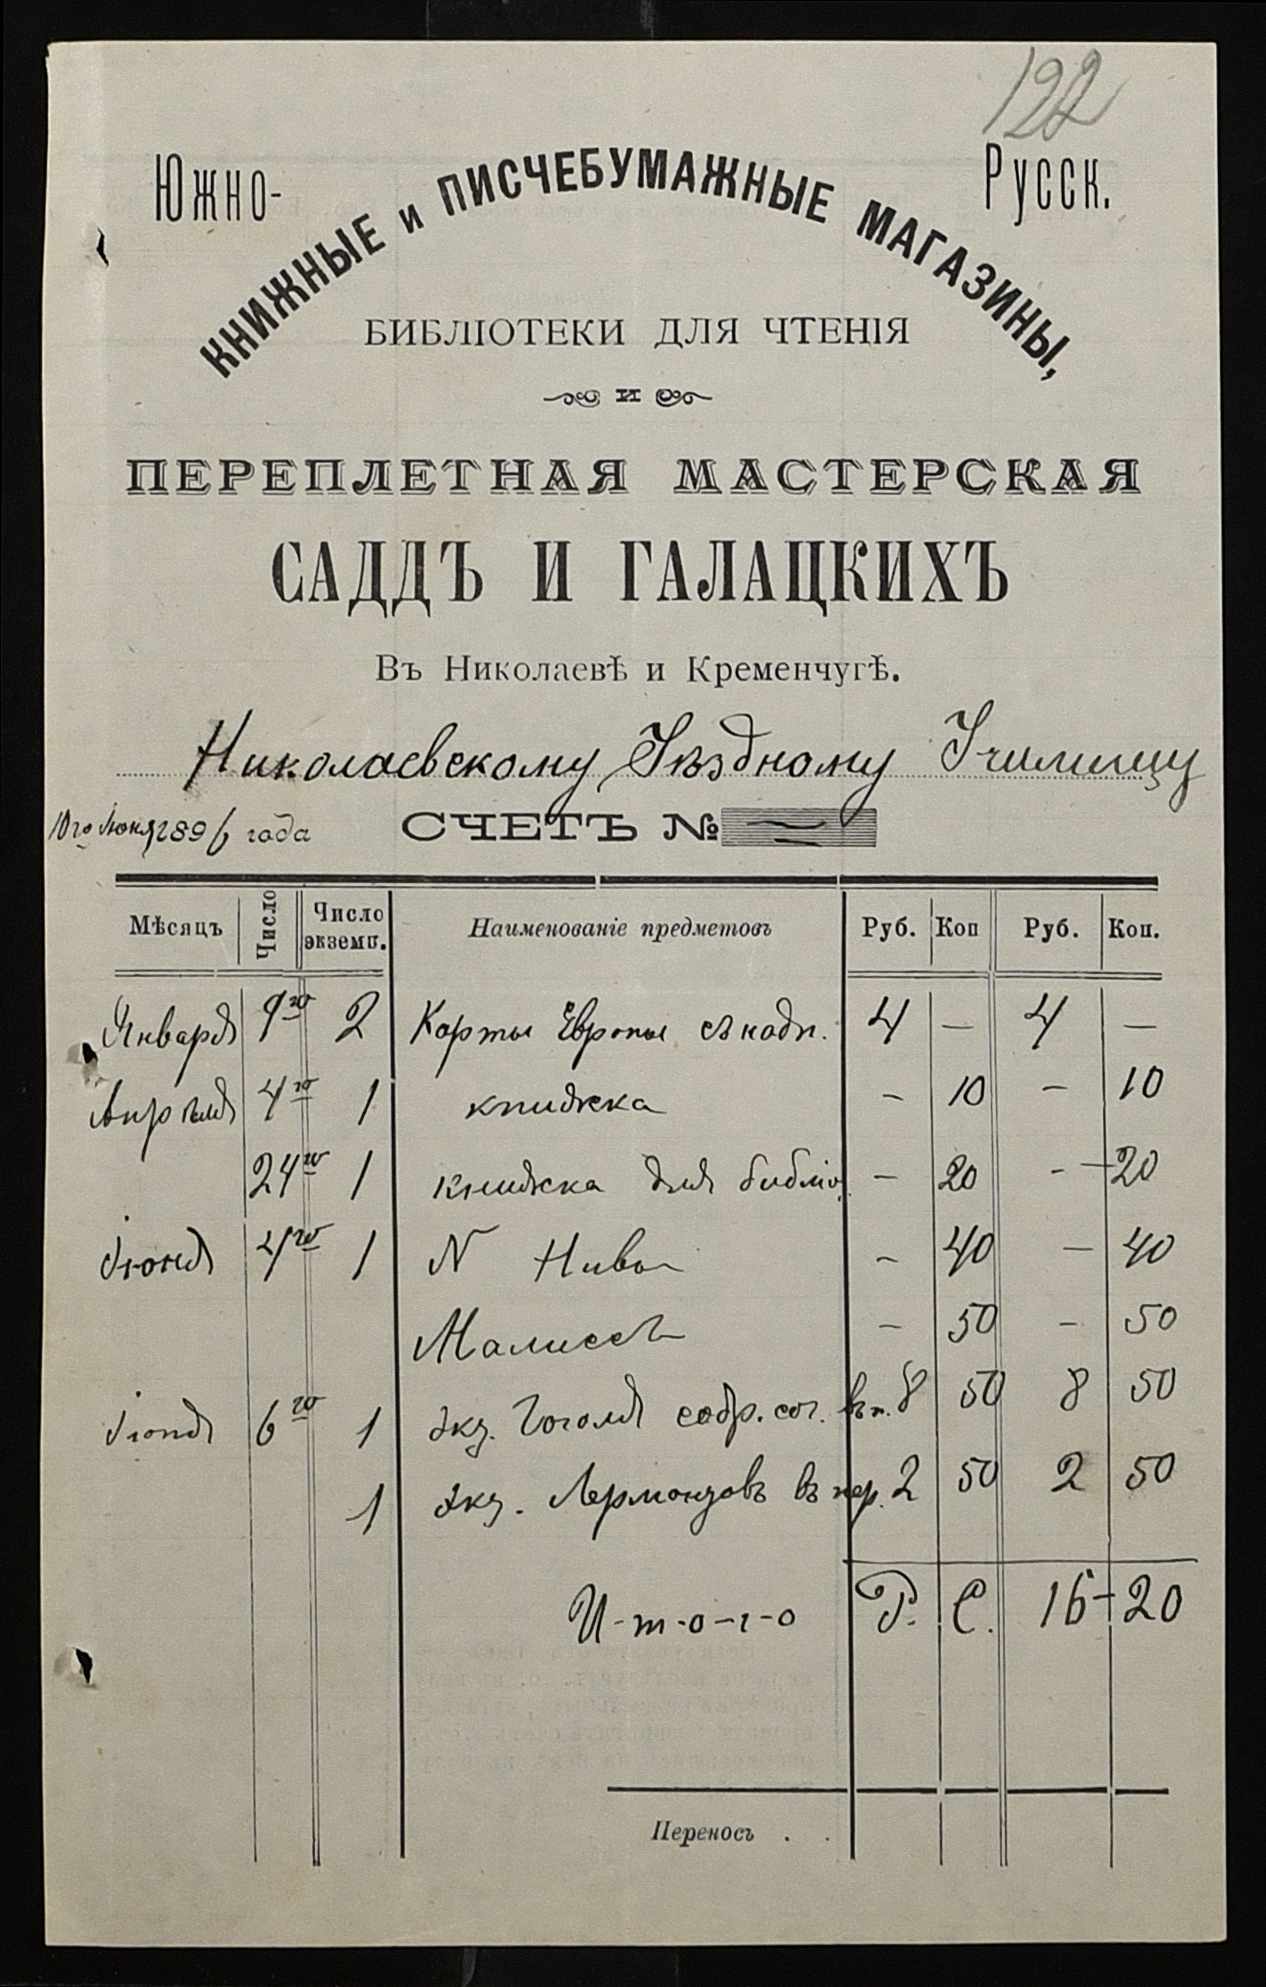 122
Южно- Русск.
КНИЖНЫЕ и ПИСЧЕБУМАЖНЫЕ МАГАЗИНЫ,
БИБЛІОТЕКИ ДЛЯ ЧТЕНІЯ
И
ПЕРЕПЛЕТНАЯ МАСТЕРСКАЯ
САДДЪ И ГАЛАЦКИХЪ
Въ Николаевѣ и Кременчугѣ.
Николаевскому Уѣздному Училищу
10го Іюня 1896 года СЧЕТЪ № —
Мѣсяцъ Число Число экземп. Наименованіе предметовъ Руб. Коп Руб. Коп.
Января 9го 2 Карты Европы съ надп. 4 — 4 —
Апрѣля 4го 1 книжка - 10 - 10
24го 1 книжка для библіо. - 20 - 20
Іюня 4го 1 N Нива - 40 - 40
- 50 - 50
Іюня 6го 1 экз. Гоголя собр. соч. въ п. 8 50 8 50
1 экз. Лермонтовъ въ пер. 2 50 2 50
И-т-о-г-о Р. С. 16-20
Переносъ . .